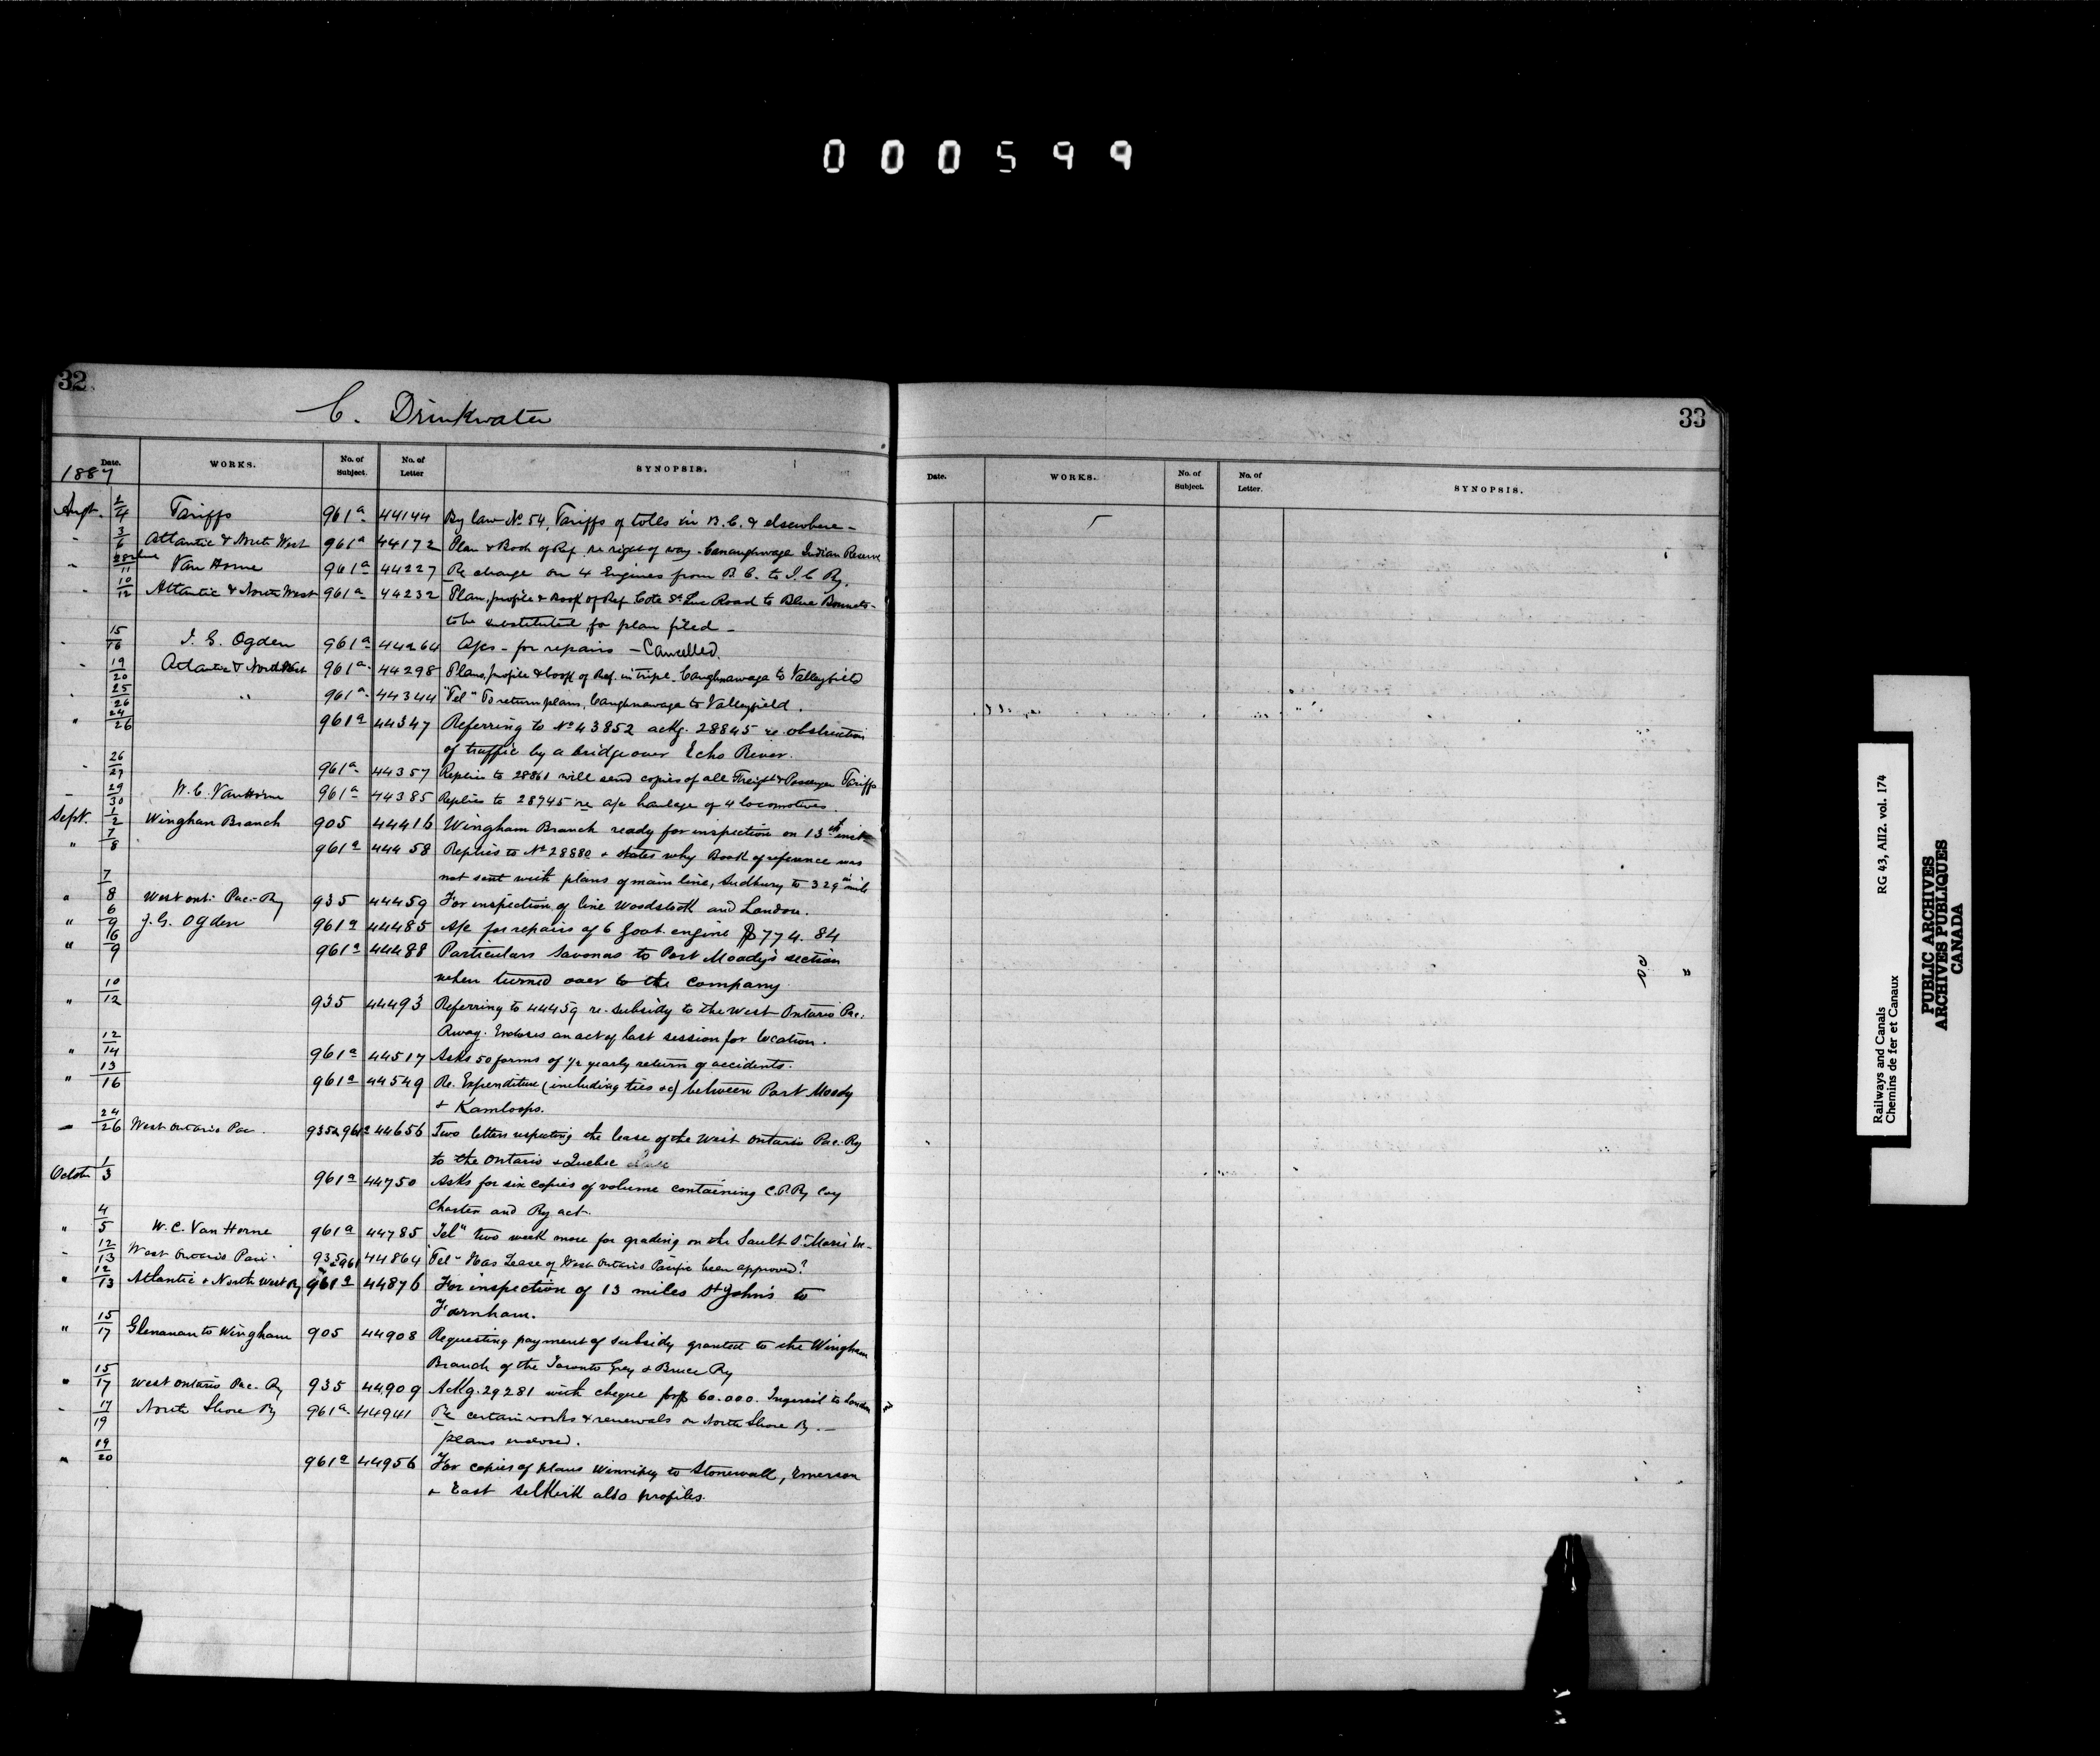 000599
32
C. Drinkwater
Date. WORKS. No. of Subject. No. of Letter SYNOPSIS.
1887
Augt. 2/4 Tariffs 961a 44144 By law No 54, Tariffs of tolls in B.C. & elsewhere -
" 3/6 Atlantic & North West 961a 44172 Plan & Book of Ref. re right of way - Caughnawaga Indian Reserve
" 11 Van Horne 961a 44227 Re charge on 4 Engines from B.C. to I.C Ry.
" 10/12 Atlantic & North West 961a 44232 Plan, profile & Book of Ref Cote St Luc Road to Blue Bonnets -
to be substituted for plan filed -
" 15/16 I. G. Ogden 961a 44264 A/cs - for repairs - Cancelled.
" 19/20 Atlantic & North West 961a 44298 Plans, profile & book of Ref. in tripe. Caughnawaga to Valleyfield
" 25/26 " 961a 44344 "Tel" To return plans, Caughnawaga to Valleyfield.
" 24/26 961a 44347 Referring to No 43852 ackg. 28845 re obstruction
of traffic by a bridge over Echo River.
" 26/27 961a 44357 Replies to 28861 will send copies of all Freight & Passenger Tariffs
" 29/30 W. C. Van Horne 961a 44385 Replies to 28945 re a/c haulage of 4 locomotives.
Sept. 1/2 Wingham Branch 905 44416 Wingham Branch ready for inspection on 13th inst
" 7/8 961a 44458 Replies to No 28880 & states why Book of reference was
not sent with plans of main line, Sudbury to 329th mile
" 7/8 West Ont: Pac- Ry 935 44459 For inspection of line Woodstock and London.
" 6/9 J. G. Ogden 961a 44485 A/c for repairs of 6 foot engine $774.84
" 16/9 961a 44488 Particulars Savonas to Port Moody's section
when turned over to the company.
" 10/12 935 44493 Referring to 44459 re. subsidy to the West Ontario Pac.
Rway. Endorses an act of last session for location.
" 12/14 961a 44517 Asks 50 forms of 1/2 yearly return of accidents.
" 13/16 961a 44549 Re. Expenditure (including ties &c) between Port Moody
& Kamloops.
" 24/26 West Ontario Pac. 935 & 961a 44656 Two letters respecting the lease of the West Ontario Pac. Ry
to the Ontario & Quebec
Octobr 1/3 961a 44750 Asks for six copies of volume containing C.P.Ry Coy
Charter and Ry act.
" 4/5 W. C. Van Horne 961a 44785 Tel" two week more for grading on the Sault St Marie
" 12/13 West Ontario Paci- 935 & 961 44864 "Tel" Has Lease of West Ontario Pacific been approved?
" 12/13 Atlantic & North West Ry 961a 44876 For inspection of 13 miles St John's to
Farnham.
" 15/17 Glenanan to Wingham 905 44908 Requesting payment of subsidy granted to the Wingham
Branch of the Toronto Grey & Bruce Ry
" 15/17 West Ontario Pac. Ry 935 44909 Ackg. 29281 with cheque for $60.000. Ingersoll to London
" 17/19 North Shore Ry 961a 44941 Re certain works & renewals on North Shore Ry. -
plans enclosed.
" 19/20 961a 44956 For copies of plans Winnipeg to Stonewall, Emerson
& East Selkirk also profiles.
33
Date. WORKS. No. of Subject. No. of Letter. SYNOPSIS.
Railways and Canals RG 43, AII2. vol. 174
Chemins de fer et Canaux
PUBLIC ARCHIVES
ARCHIVES PUBLIQUES
CANADA